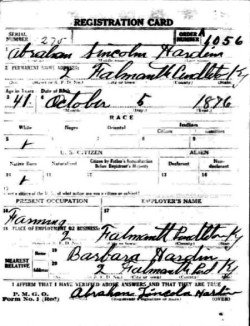 REGISTRATION CARD
SERIAL NUMBER 225 ORDER NUMBER A1056
Abraham Lincoln Hardin
2 PERMANENT HOME ADDRESS:
2 Falmouth Pendleton Ky
Age in Years Date of Birth
41 October 5 1876
RACE
White Negro Oriental Indian
Citizen
U. S. CITIZEN ALIEN
Native Born Naturalized Citizen by Father's Naturalization Before Registrant's Majority Declarant Non-declarant
If not a citizen of the U. S., of what nation are you a citizen or subject?
PRESENT OCCUPATION EMPLOYER'S NAME
Farming
PLACE OF EMPLOYMENT OR BUSINESS:
2 Falmouth Pendleton Ky
NEAREST RELATIVE Name Barbara Hardin
Address 2 Falmouth Ky
I AFFIRM THAT I HAVE VERIFIED ABOVE ANSWERS AND THAT THEY ARE TRUE
P. M. G. O.
Form No. 1 (Red) Abraham Lincoln Hardin
(OVER)